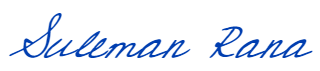 Suleman Rana